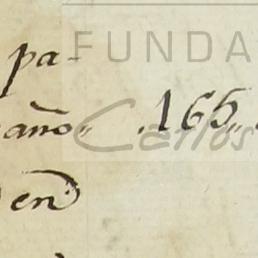 FUNDA
pa-
año„ .165„
Carlos
en